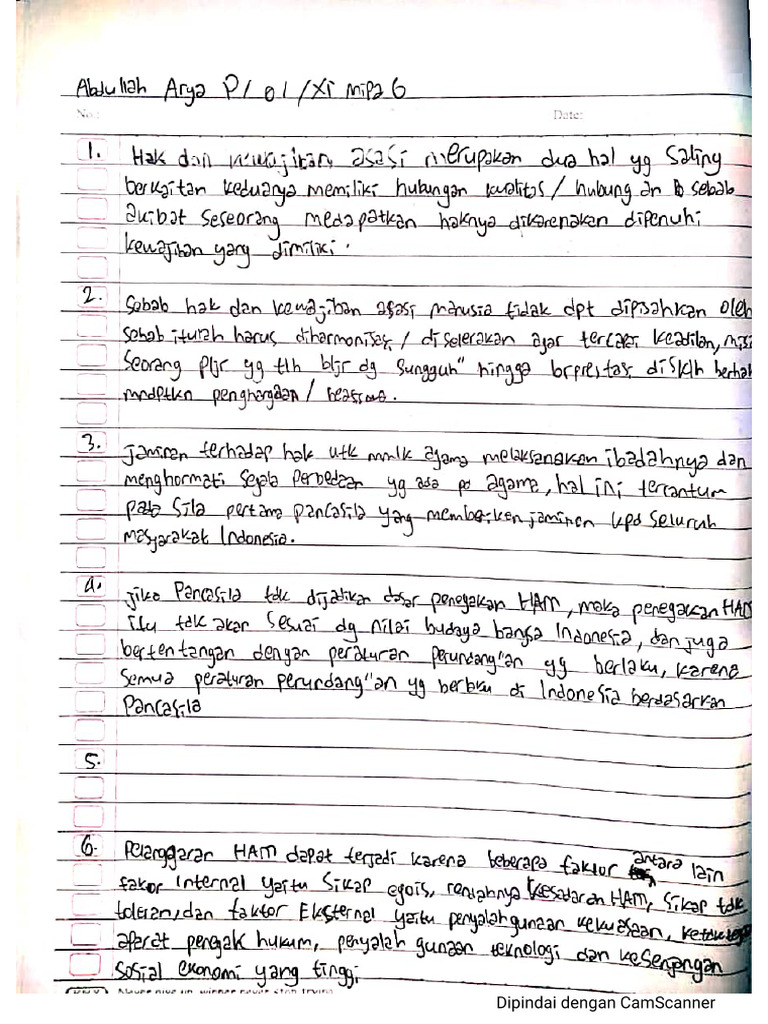 Abdullah Arya P / 01 / XI Mipa 6
No.: Date:
1. Hak dan kewajiban asasi merupakan dua hal yg saling
berkaitan keduanya memiliki hubungan kualitas / hubungan sebab
akibat seseorang medapatkan haknya dikarenakan dipenuhi
kewajiban yang dimiliki.
2. Sebab hak dan kewajiban asasi manusia tidak dpt dipisahkan oleh
sebab itulah harus diharmonisasi / diselerakan agar tercapai keadilan, misal
seorang pljr yg tlh bljr dg sungguh" hingga brprestasi diSklh berhak
mndptkn penghargaan /
3. jaminan terhadap hak utk mmlk agama melaksanakan ibadahnya dan
menghormati segala perbedaan yg ada pd agama, hal ini tercantum
pada Sila pertama pancasila yang memberikan jaminan kpd seluruh
masyarakat Indonesia.
4. jika Pancasila tdk dijadikan dasar penegakan HAM, maka penegakkan HAM
itu tdk akan sesuai dg nilai budaya bangsa Indonesia, dan juga
bertentangan dengan peraturan perundang"an yg berlaku, karena
semua peraturan perundang"an yg berlaku di Indonesia berdasarkan
Pancasila
5.
6. Pelanggaran HAM dapat terjadi karena beberapa faktor antara lain
faktor internal yaitu Sikap egois, rendahnya kesadaran HAM, Sikap tdk
toleran, dan faktor Eksternal yaitu penyalahgunaan kekuasaan,
aparat penegak hukum, penyalah gunaan teknologi dan kesenjangan
sosial ekonomi yang tinggi
Dipindai dengan CamScanner